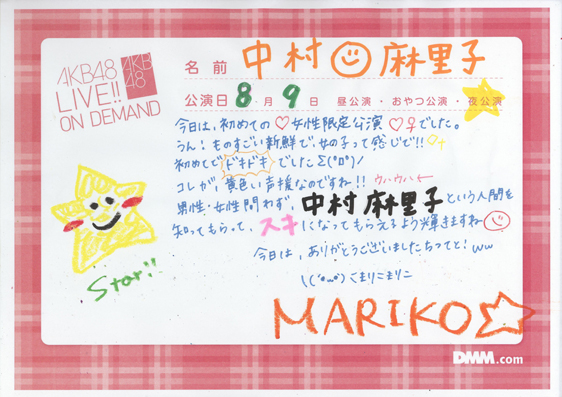 AKB48
LIVE!!
ON DEMAND
AKB
48
名前 中村 麻里子
公演日 8月 9日 昼公演・おやつ公演・夜公演
今日は、初めての♡女性限定公演♡♀でした。
うん!ものすごい新鮮で、女の子って感じで!!♀
初めてで ドキドキ でしたΣ(ﾟDﾟ)ﾉ
コレが、黄色い声援なのですね!! ウハウハ←
男性・女性問わず、中村麻里子という人間を
知ってもらって、スキになってもらえるよう輝きますね
今日は、ありがとうございましたちってと!ww
こまりこまりこ
Star!!
MARIKO☆
DMM.com